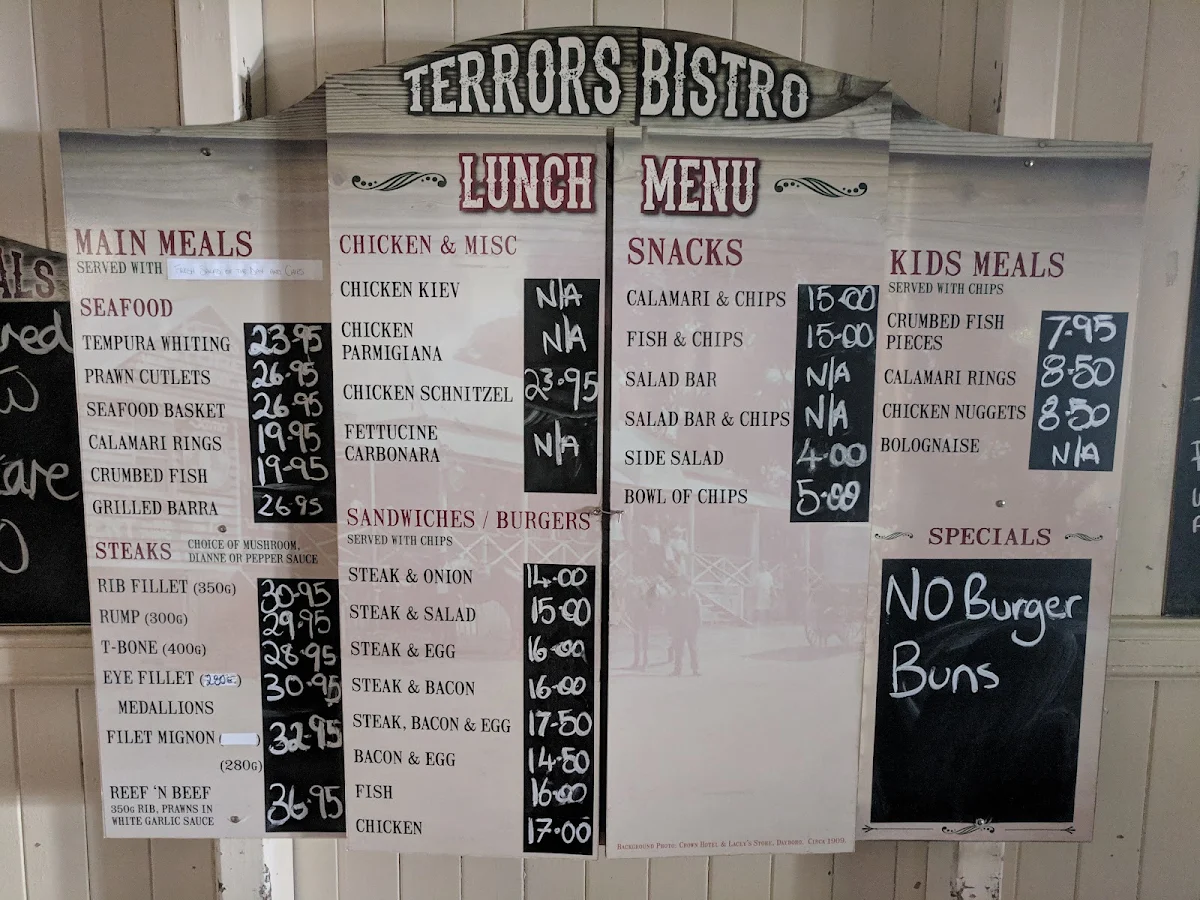 TERRORS BISTRO
LUNCH MENU
MAIN MEALS
SERVED WITH
SEAFOOD
TEMPURA WHITING 23.95
PRAWN CUTLETS 26.95
SEAFOOD BASKET 26.95
CALAMARI RINGS 19.95
CRUMBED FISH 19.95
GRILLED BARRA 26.95
STEAKS CHOICE OF MUSHROOM,
DIANNE OR PEPPER SAUCE
RIB FILLET (350G) 30.95
RUMP (300G) 29.95
T-BONE (400G) 28.95
EYE FILLET (280G) 30.95
MEDALLIONS
FILET MIGNON 32.95
(280G)
REEF 'N BEEF 36.95
350G RIB, PRAWNS IN
WHITE GARLIC SAUCE
CHICKEN & MISC
CHICKEN KIEV N/A
CHICKEN
PARMIGIANA N/A
CHICKEN SCHNITZEL 23.95
FETTUCINE
CARBONARA N/A
SANDWICHES / BURGERS
SERVED WITH CHIPS
STEAK & ONION 14.00
STEAK & SALAD 15.00
STEAK & EGG 16.00
STEAK & BACON 16.00
STEAK, BACON & EGG 17.50
BACON & EGG 14.50
FISH 16.00
CHICKEN 17.00
SNACKS
CALAMARI & CHIPS 15.00
FISH & CHIPS 15.00
SALAD BAR N/A
SALAD BAR & CHIPS N/A
SIDE SALAD 4.00
BOWL OF CHIPS 5.00
BACKGROUND PHOTO: CROWN HOTEL & LACEY'S STORE, DAYBORO. CIRCA 1909.
KIDS MEALS
SERVED WITH CHIPS
CRUMBED FISH
PIECES 7.95
CALAMARI RINGS 8.50
CHICKEN NUGGETS 8.50
BOLOGNAISE N/A
SPECIALS
NO Burger
Buns
ALS
red
are